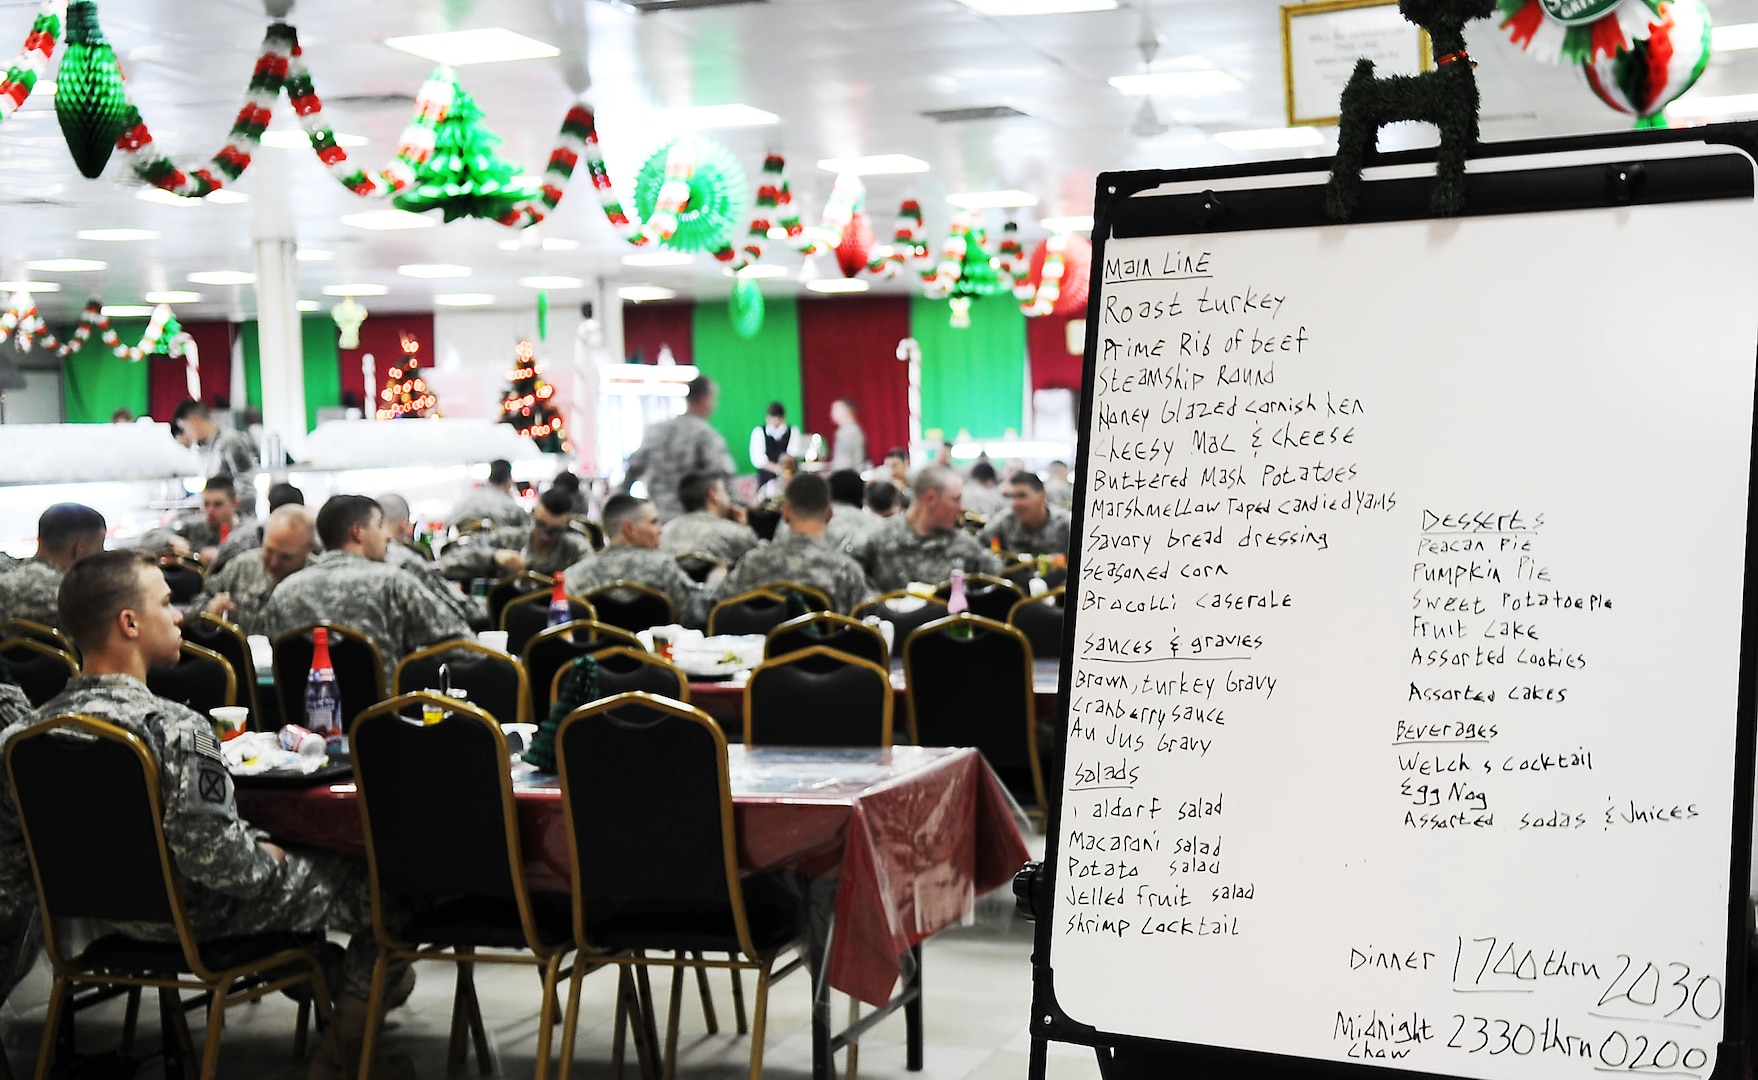 Main Line
Roast turkey
Prime Rib of beef
Steamship Round
Honey Glazed cornish hen
Cheesy Mac & cheese
Buttered Mash Potatoes
Marshmellow Toped candied Yams
Savory bread dressing
Seasoned corn
Brocolli caserole
Sauces & gravies
Brown, turkey Gravy
Cranberry sauce
Au Jus Gravy
Salads
aldorf salad
Macaroni salad
Potato salad
Jelled fruit salad
Shrimp Cocktail
Desserts
Peacan Pie
Pumpkin Pie
Sweet Potatoe Pie
Fruit Cake
Assorted Cookies
Assorted Cakes
Beverages
Welch s Cocktail
Egg Nog
Assorted sodas & Juices
Dinner 1700 thru 2030
Midnight Chow 2330 thru 0200